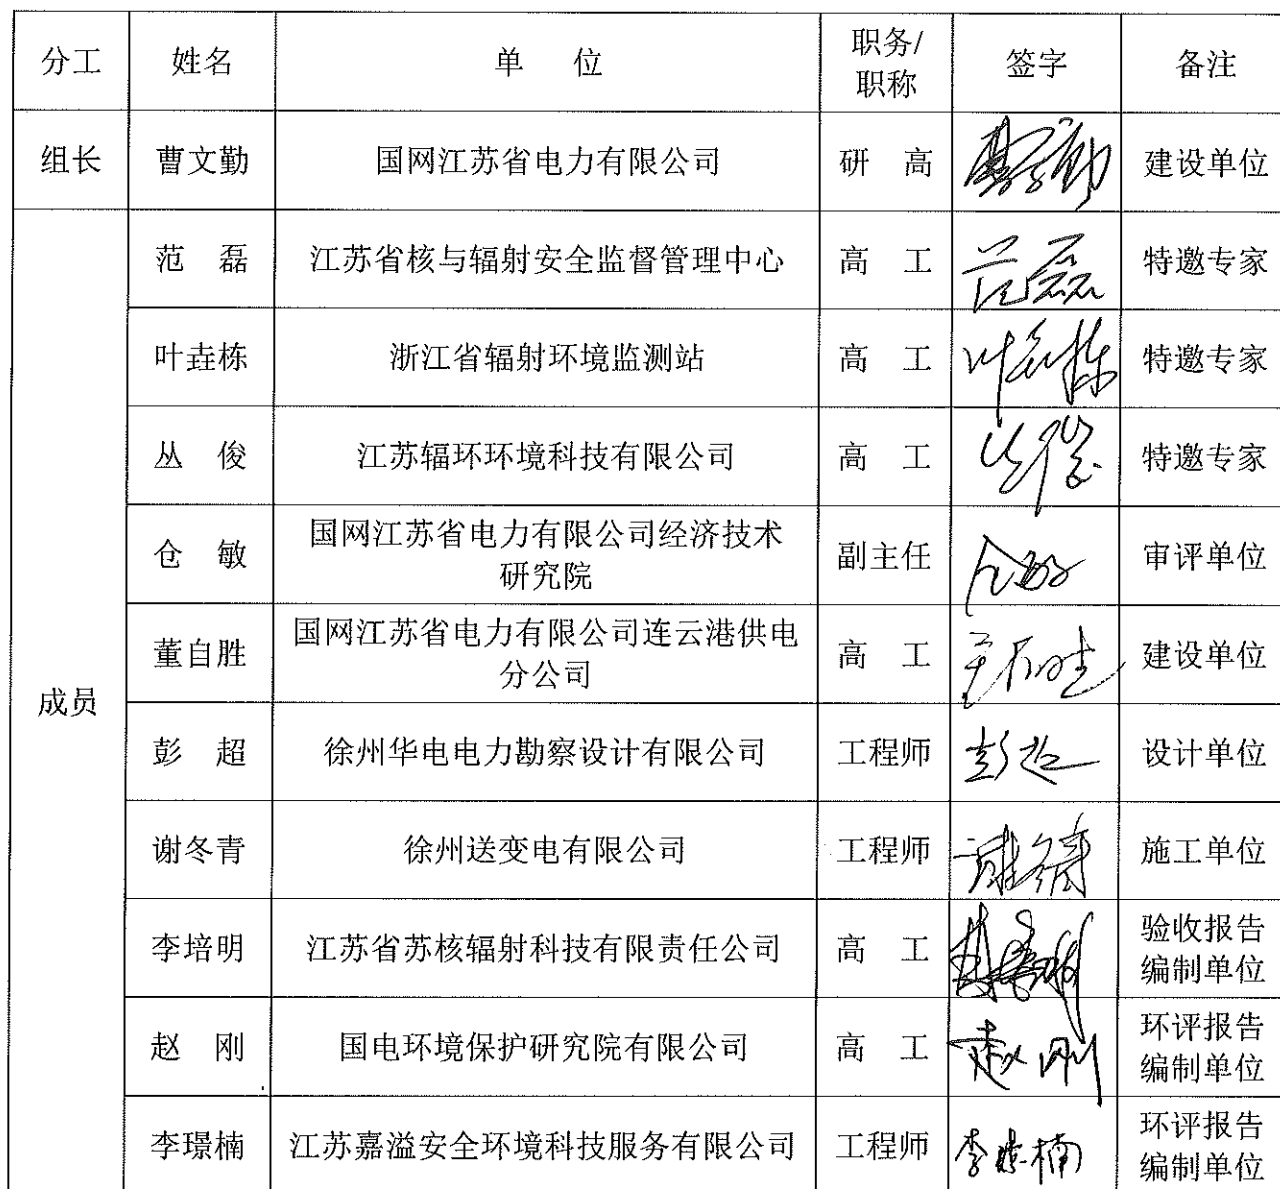 分工 姓名 单 位 职务/ 签字 备注
职称
组长 曹文勤 国网江苏省电力有限公司 研 高 建设单位
成员
范 磊 江苏省核与辐射安全监督管理中心 高 工 范磊 特邀专家
叶垚栋 浙江省辐射环境监测站 高 工 叶垚栋 特邀专家
丛 俊 江苏辐环环境科技有限公司 高 工 特邀专家
仓 敏 国网江苏省电力有限公司经济技术 副主任 仓敏 审评单位
研究院
董自胜 国网江苏省电力有限公司连云港供电 高 工 建设单位
分公司
彭 超 徐州华电电力勘察设计有限公司 工程师 彭超 设计单位
谢冬青 徐州送变电有限公司 工程师 谢冬青 施工单位
李培明 江苏省苏核辐射科技有限责任公司 高 工 验收报告
编制单位
赵 刚 国电环境保护研究院有限公司 高 工 赵刚 环评报告
编制单位
李璟楠 江苏嘉溢安全环境科技服务有限公司 工程师 李璟楠 环评报告
编制单位